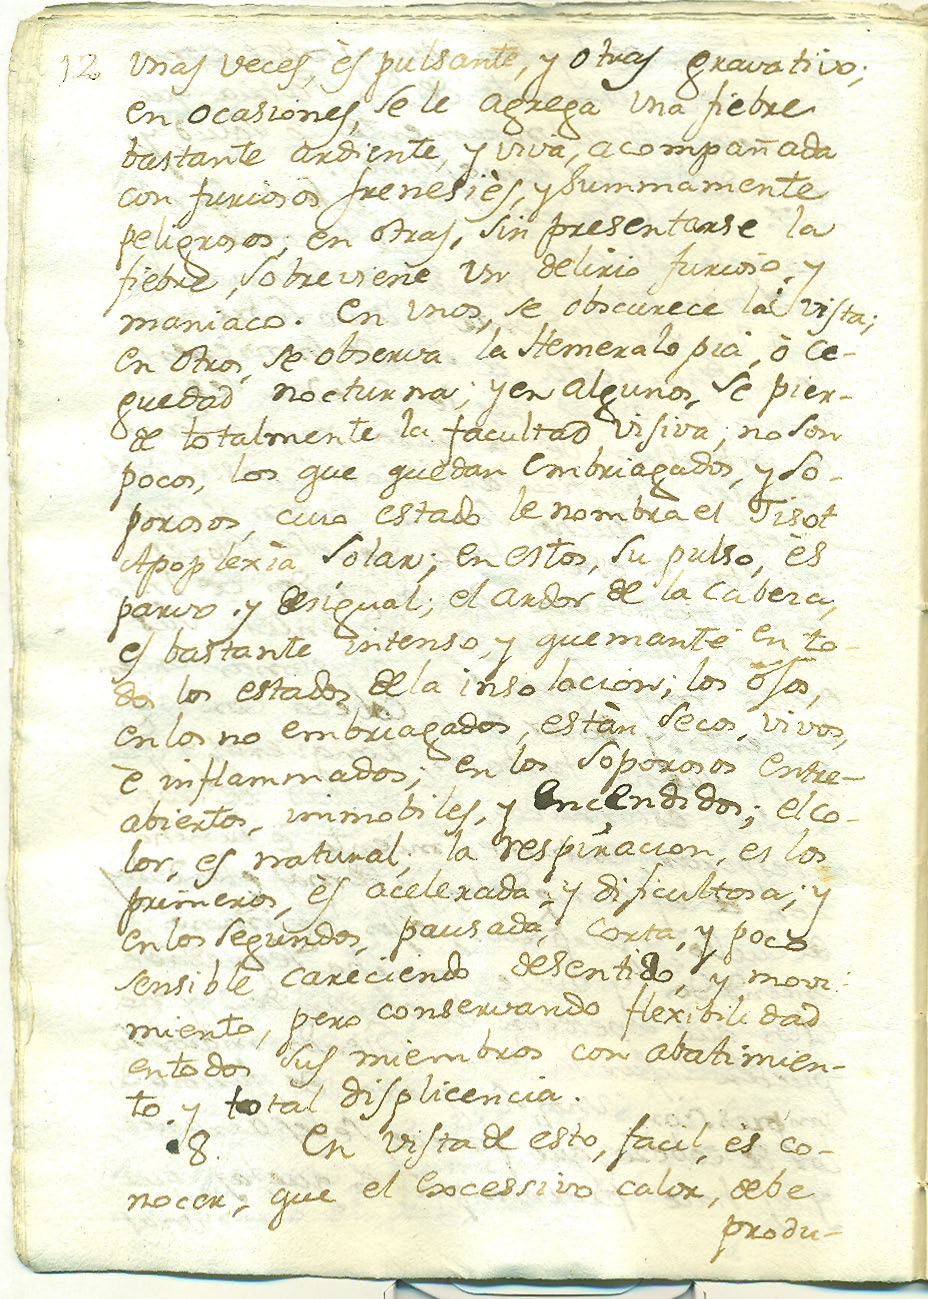 12 Unas veces, ès pulsante, y otras gravativo;
en ocasiones, se le agrega una fiebre
bastante ardiente, y viva, acompañada
con furiosos frenesiès, y summamente
peligrosos; en otras, sin presentarse la
fiebre, sobreviene un delirio furioso, y
maniaco. En unos, se obscurece la vista;
en otros, se observa la Hemeralopia, ò ce-
guedad nocturna; y en algunos, se pier-
de totalmente la facultad visiva; no son
pocos, los que quedan embriagados, y so-
porosos, cuio estado le nombra el Tisot
Apoplexìa Solar; en estos, su pulso, ès
parvo y desigual; el ardor de la Cabeza,
es bastante intenso, y quemante en to-
dos los estados de la insolacion; los ojos,
en los no embriagados, estàn secos, vivos,
è inflammados; en los soporosos entre-
abiertos, immobiles, y encendidos; el co-
lor, es natural; la respiracion, es los
primeros, ès acelerada, y dificultosa; y
en los segundos, pausada, corta, y poco
sensible careciendo de sentido, y movi-
miento, pero conservando flexibilidad
en todos sus miembros con abatimien-
to y total displicencia.
8. En vista de esto, facil, ès co-
nocer, que el excessivo calor, debe
produ-